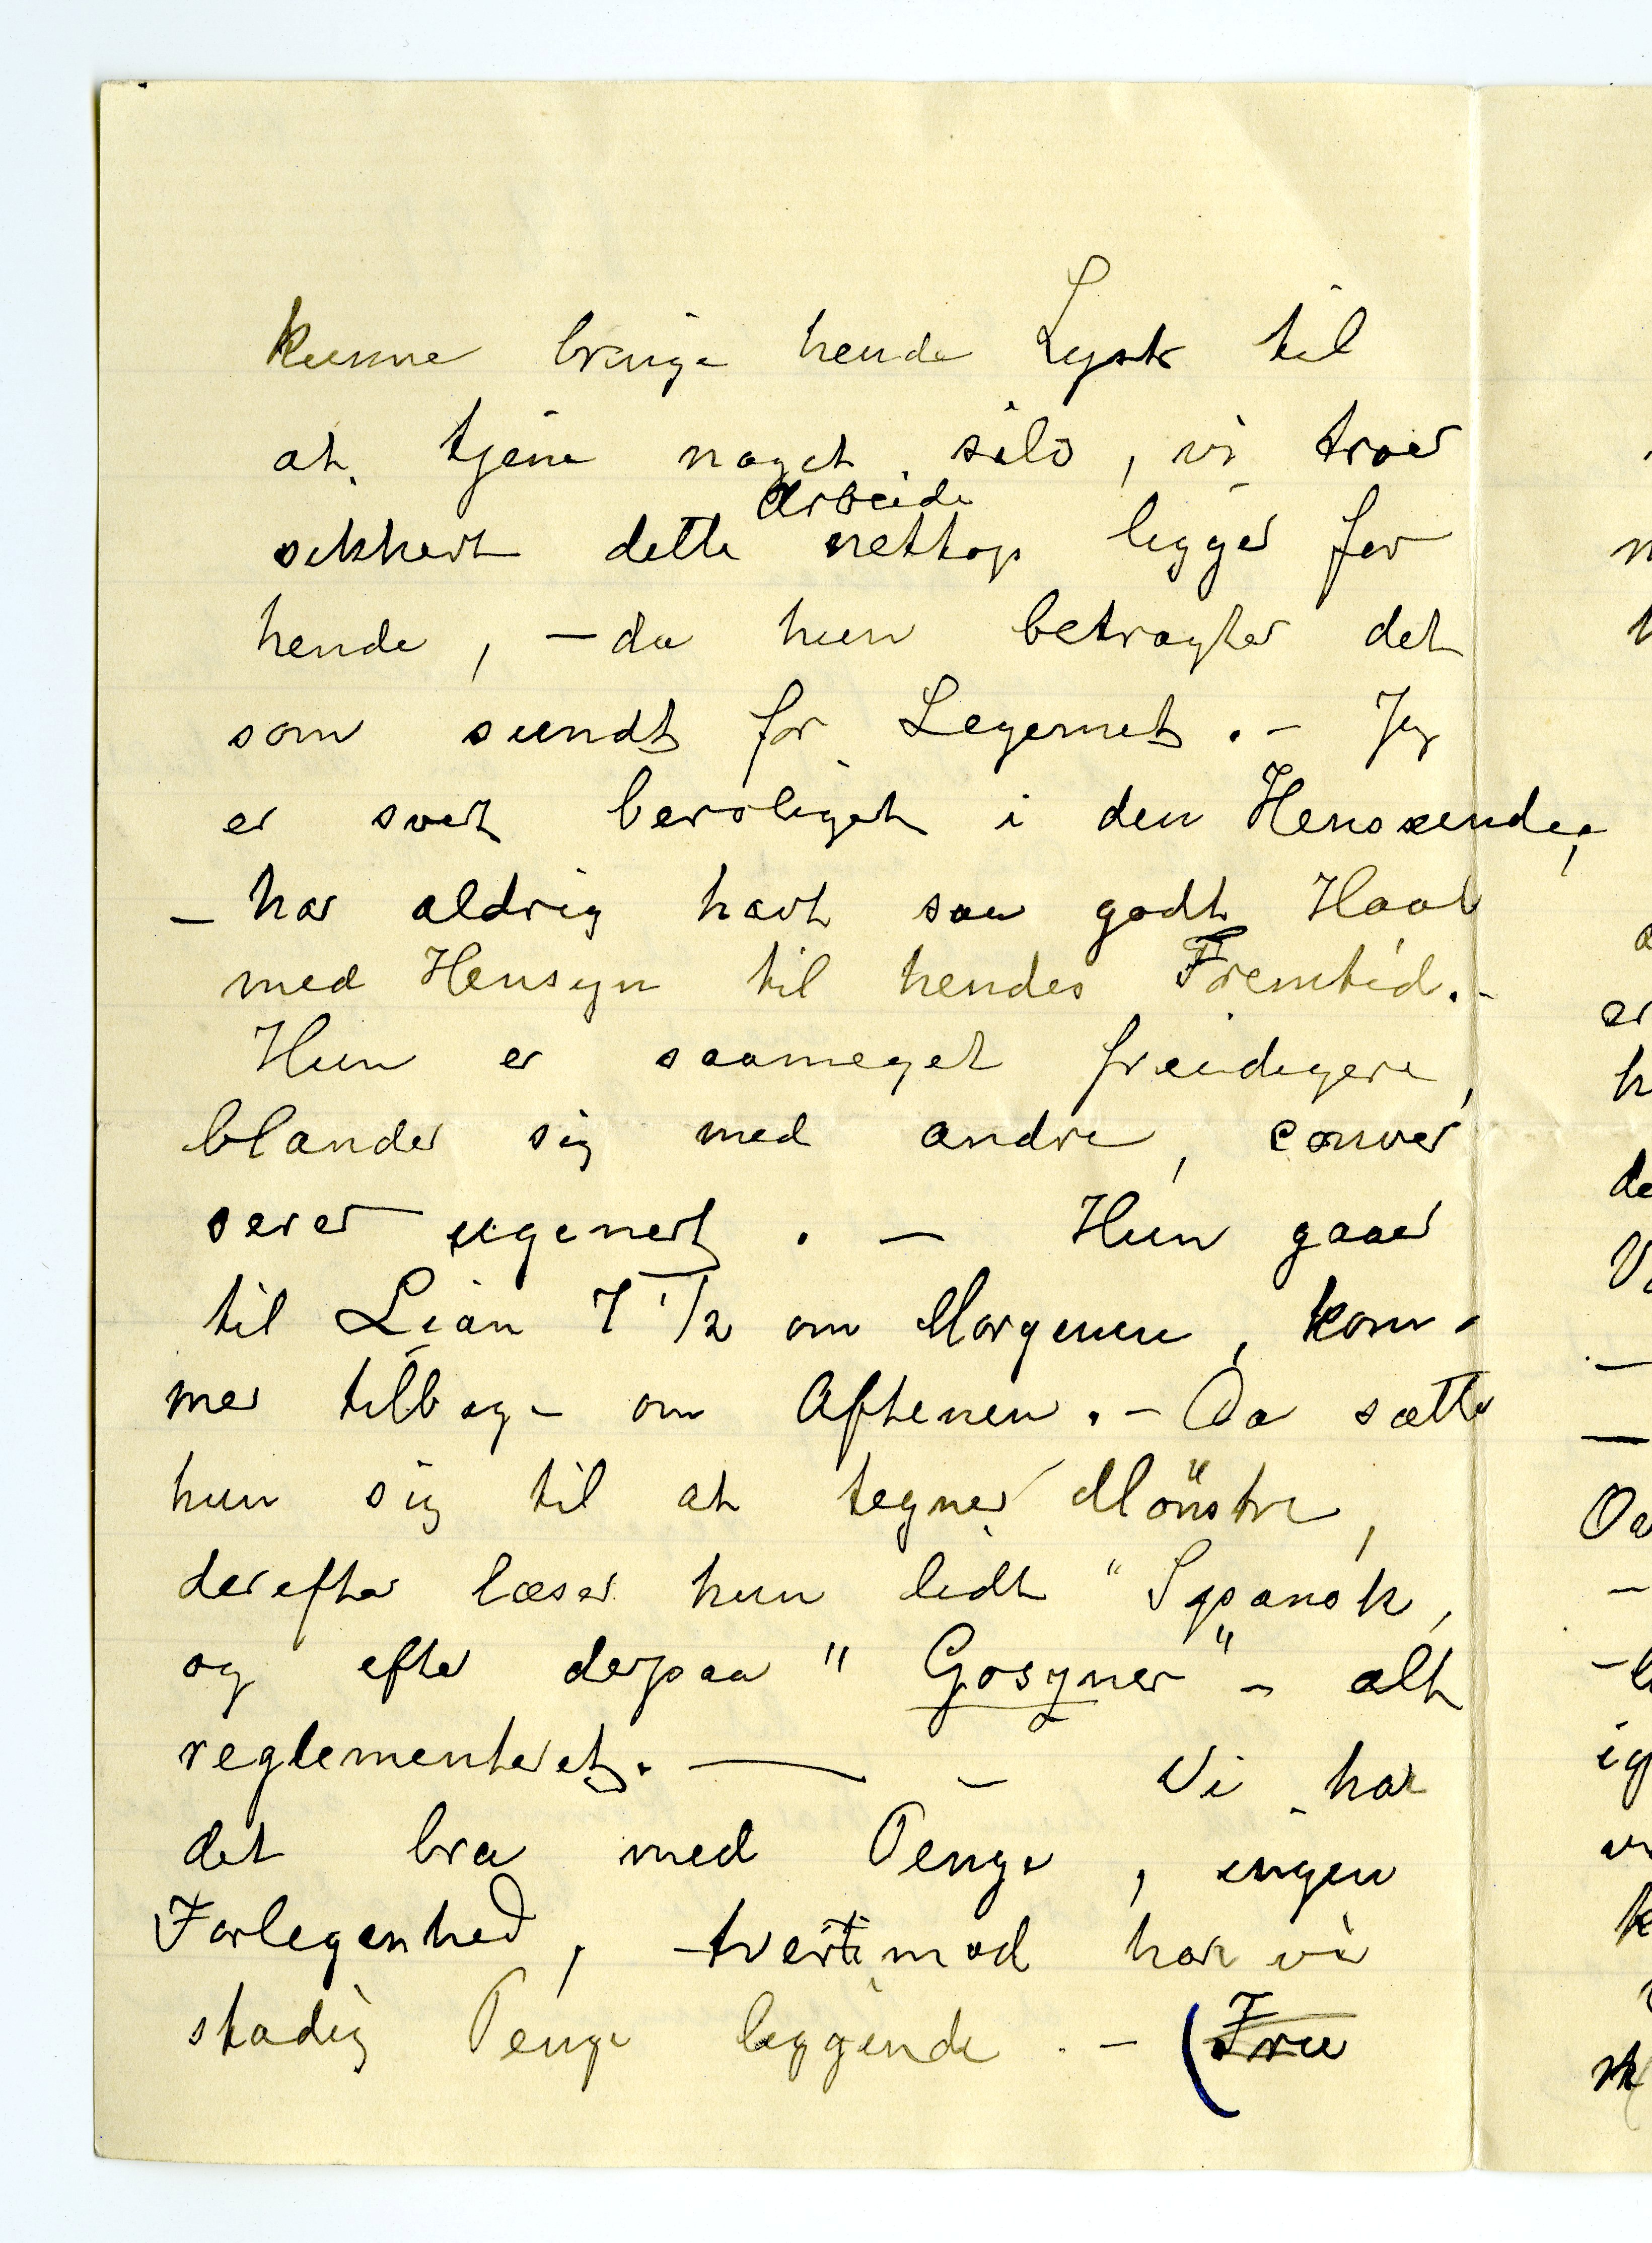 kunne bringe hende Lyst til
at tjene noget selv, vi troer
arbeide
sikkert dette nettop ligger for
hende, – da hun betragter det
som sundt for Legemet. – Jeg
er svært beroliget i den Henseende,
– har aldrig havt saa godt Haab
med Hensyn til hendes Fremtid. –
Hun er saameget freidigere,
blander sig med andre, conver
serer ugenert. – Hun gaaer
til Lian 7 1/2 om Morgenen, kom-
mer tilbage om Aftenen. – Da sætter
hun sig til at tegner Mönstre,
derefter læser hun lidt "Spansk,
og efter derpaa " Goszner" – alt
reglementeret. — – Vi har
det bra med Penge, ingen
Forlegenhed, tvertimod har vi
stadig Penge liggende. – (Fru